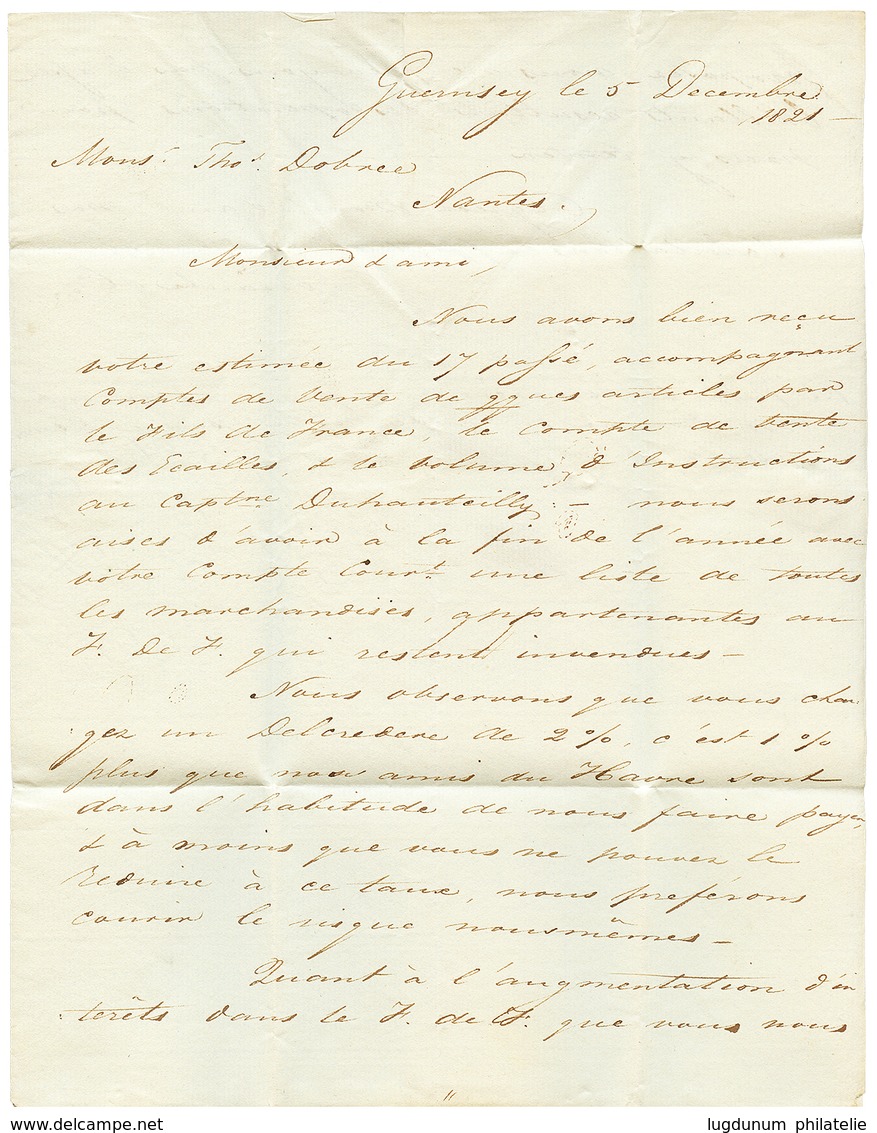 Guernsey le 5 Decembre
1821 —
Monsr. Thos. Dobree
Nantes.
Monsieur & ami,
Nous avons bien reçu
votre estimée du 17 passé, accompagnant
Comptes de Vente de qques articles par
le Fils de France, le Compte de Vente
des Ecailles, & le volume d'Instructions
au Captne Duhautcilly — nous serons
aises d'avoir à la fin de l'année avec
votre Compte Court. une liste de toutes
les marchandises, appartenantes au
F. de F. qui restent invendues —
Nous observons que vous char
gez un Delcredere de 2 %, c'est 1 %
plus que nos amis du Havre sont
dans l'habitude de nous faire payer,
& à moins que vous ne pouvez le
reduire à ce taux, nous preférons
courir le risque nousmêmes —
Quant à l'augmentation d'in
terêts dans le F. de F. que vous nous
delcampe.net
lugdunum philatelie